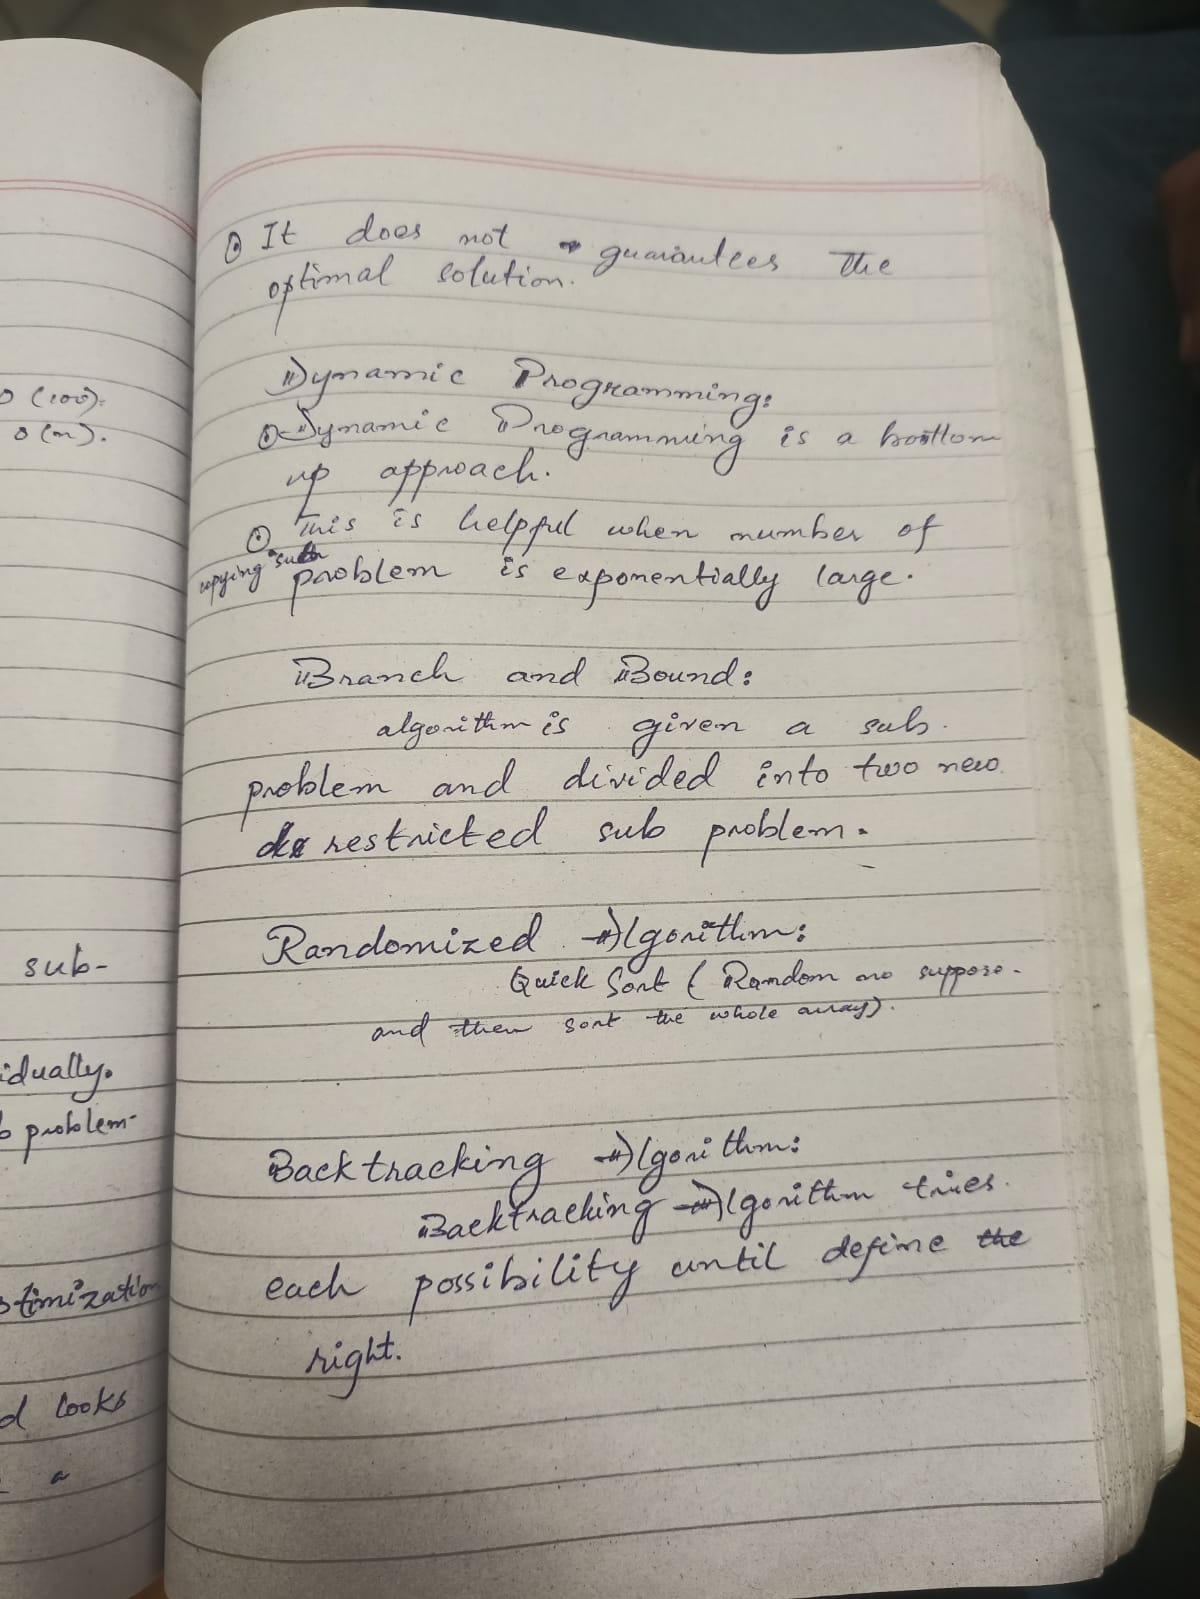 O (100).
O(n).
sub-
idually.
b problem-
otimization
d looks
a
It does not guarantees the
optimal solution.
Dynamic Programming:
Dynamic Programming is a bottom
up approach.
This is helpful when number of
copying sub
problem is exponentially large.
Branch and Bound:
algorithm is given a sub
problem and divided into two new
restricted sub problem.
Randomized Algorithm:
Quick Sort ( Random no suppose.
and then sort the whole array).
Backtracking Algorithm:
Backtracking Algorithm tries.
each possibility until define the
right.